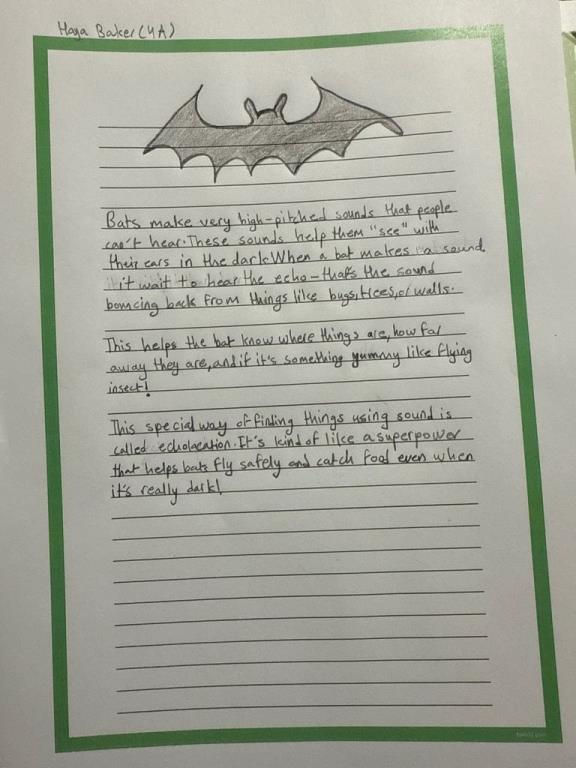 Haya Baker (4A)
Bats make very high-pitched sounds that people
can't hear. These sounds help them "see" with
their ears in the dark. When a bat makes a sound
it wait to hear the echo - that's the sound
bouncing back from things like bugs, trees, or walls.
This helps the bat know where things are, how far
away they are, and if it's something yummy like flying
insect!
This special way of finding things using sound is
called echolocation. It's kind of like a superpower
that helps bats fly safely and catch food even when
it's really dark!